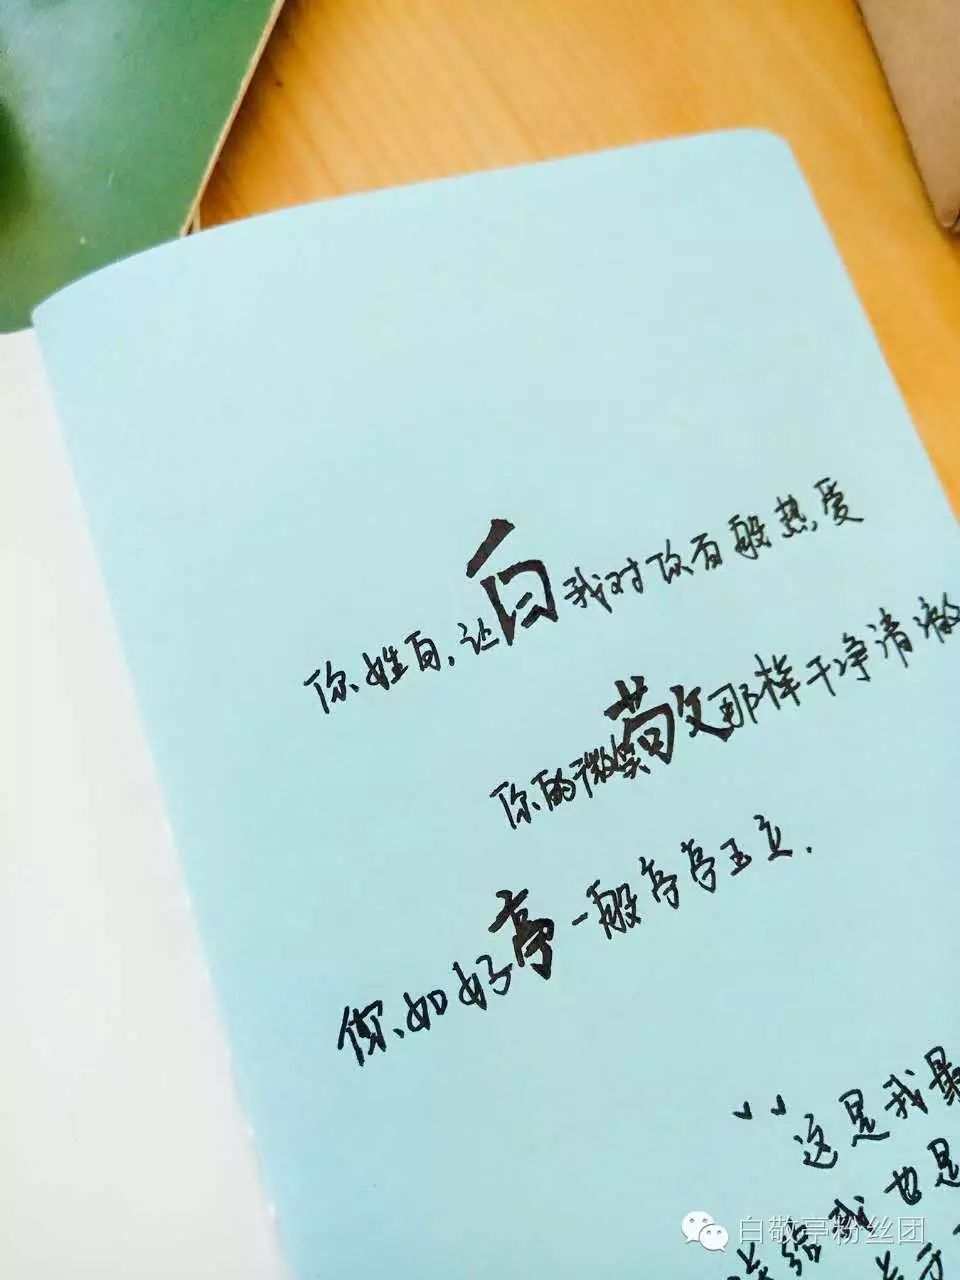 你姓白,让白我对你百般热爱
你的微笑敬那样干净清澈
你如好亭一般亭亭玉立.
“这是我最
给我也是
白敬亭粉丝团